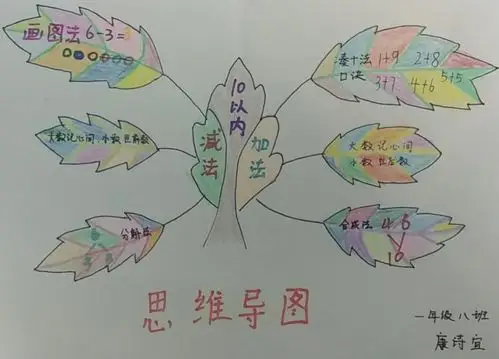 画图法 6-3=3
凑十法 1+9 2+8
口诀 3+7 4+6 5+5
10以内
减法
加法
大数记心间，小数往前数
大数记心间
小数往后数
分解法
6
3 3
合成法 4 6
10
思维导图
一年级八班
康诗宜